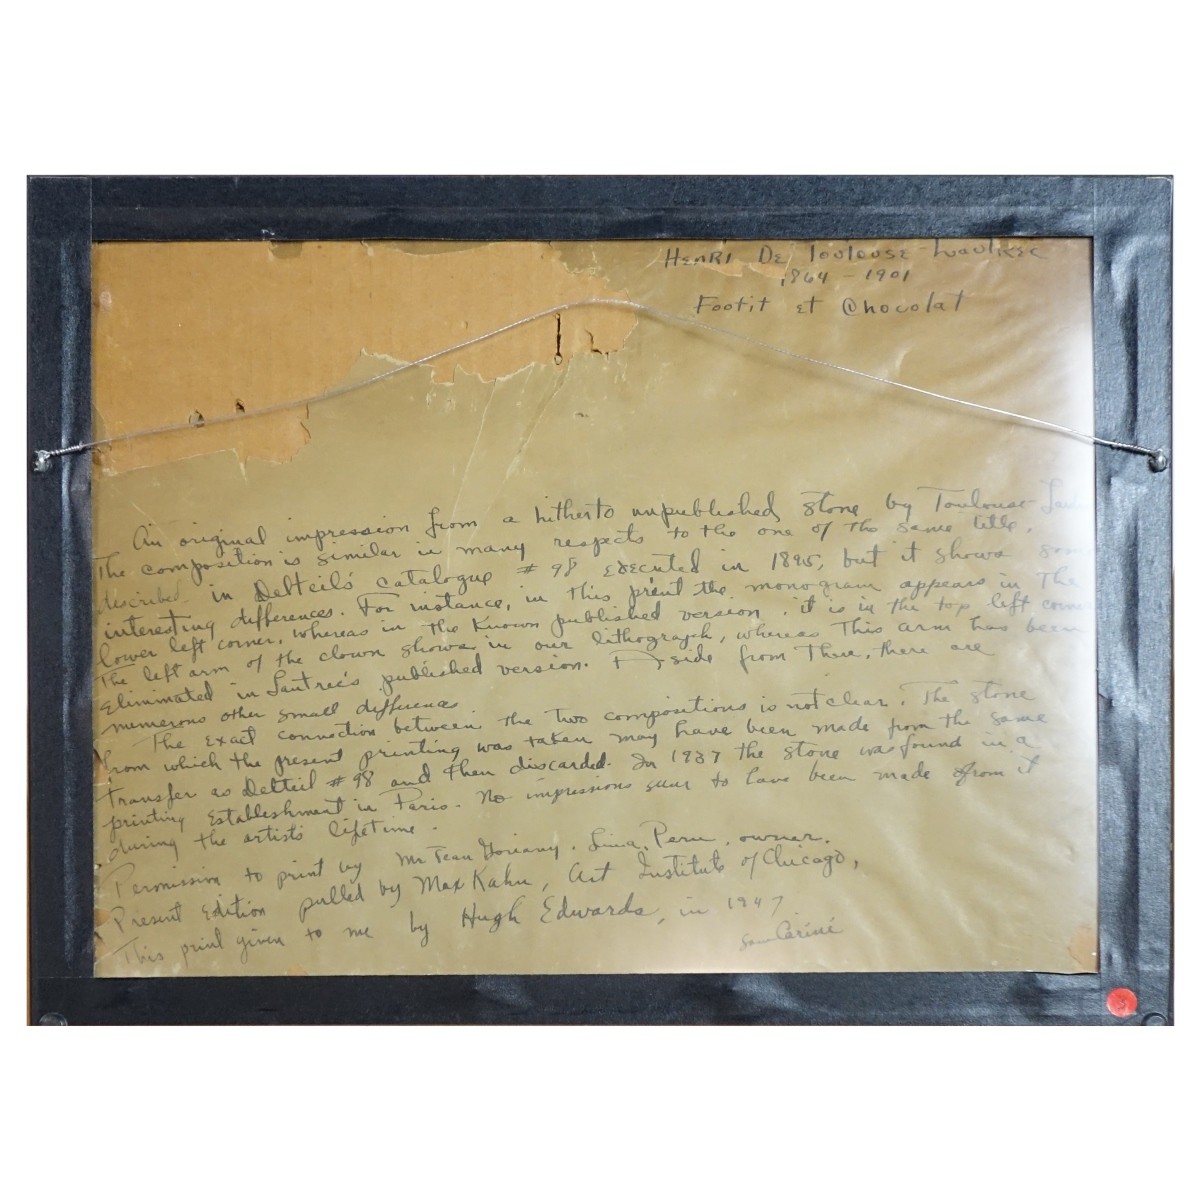 HENRI DE Toulouse-Lautrec
1864-1901
Footit et Chocolat
An original impression from a hitherto unpublished stone by Toulouse-
The composition is similar in many respects to the one of the same title,
described in Delteil's catalogue # 98 executed in 1895, but it shows some
interesting differences. For instance, in this print the monogram appears in The
lower left corner, whereas in the known published version, it is in the top left corner
The left arm of the clown shows in our lithograph, whereas This arm has been
eliminated in Lautrec's published version. Aside from These, there are
numerous other small differences
The exact connection between the two compositions is not clear. The stone
from which the present printing was taken may have been made from the same
transfer as Delteil # 98 and then discarded. In 1937 the stone was found in a
printing establishment in Paris. No impressions seem to have been made from it
during the artists lifetime.
Permission to print by Mr Jean Goriany, Lima, Peru, owner.
Present Edition pulled by Max Kahn, Art Institute of Chicago,
This print given to me by Hugh Edwards, in 1947
Sam Carini